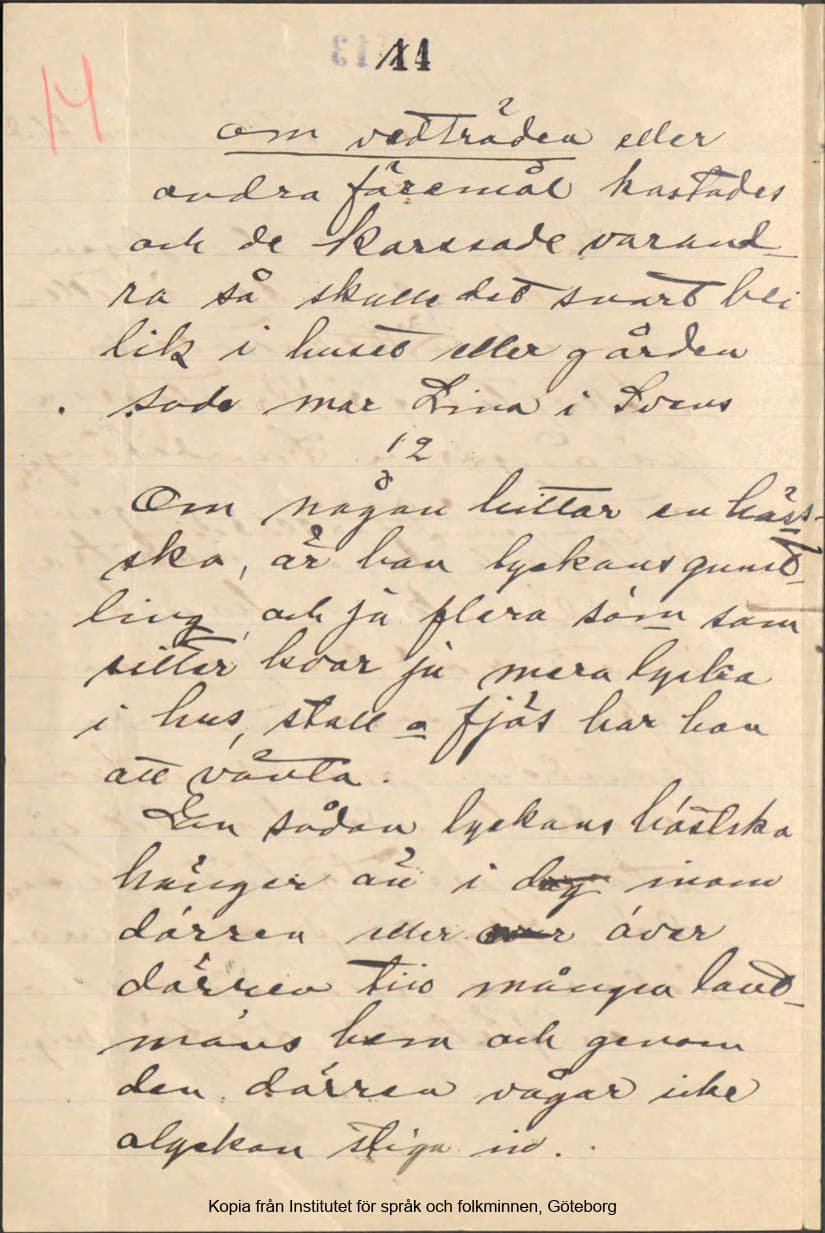 11
14
Om vedträden eller
andra föremål kastades
och de korssade varand-
ra så skulle det snart bli
lik i huset eller gården
sade mor Lina i Svens
12
Om någon hittar en häst-
sko, är han lyckans gunst-
ling, och ju flera söm som
sitter kvar ju mera lycka
i hus, stall o fjös har han
att vänta.
En sådan lyckans hästsko
hänger än i dag inom
dörren eller över
dörren till mången land-
mans hem och genom
den dörren vågar icke
olyckan stiga in.
Kopia från Institutet för språk och folkminnen, Göteborg